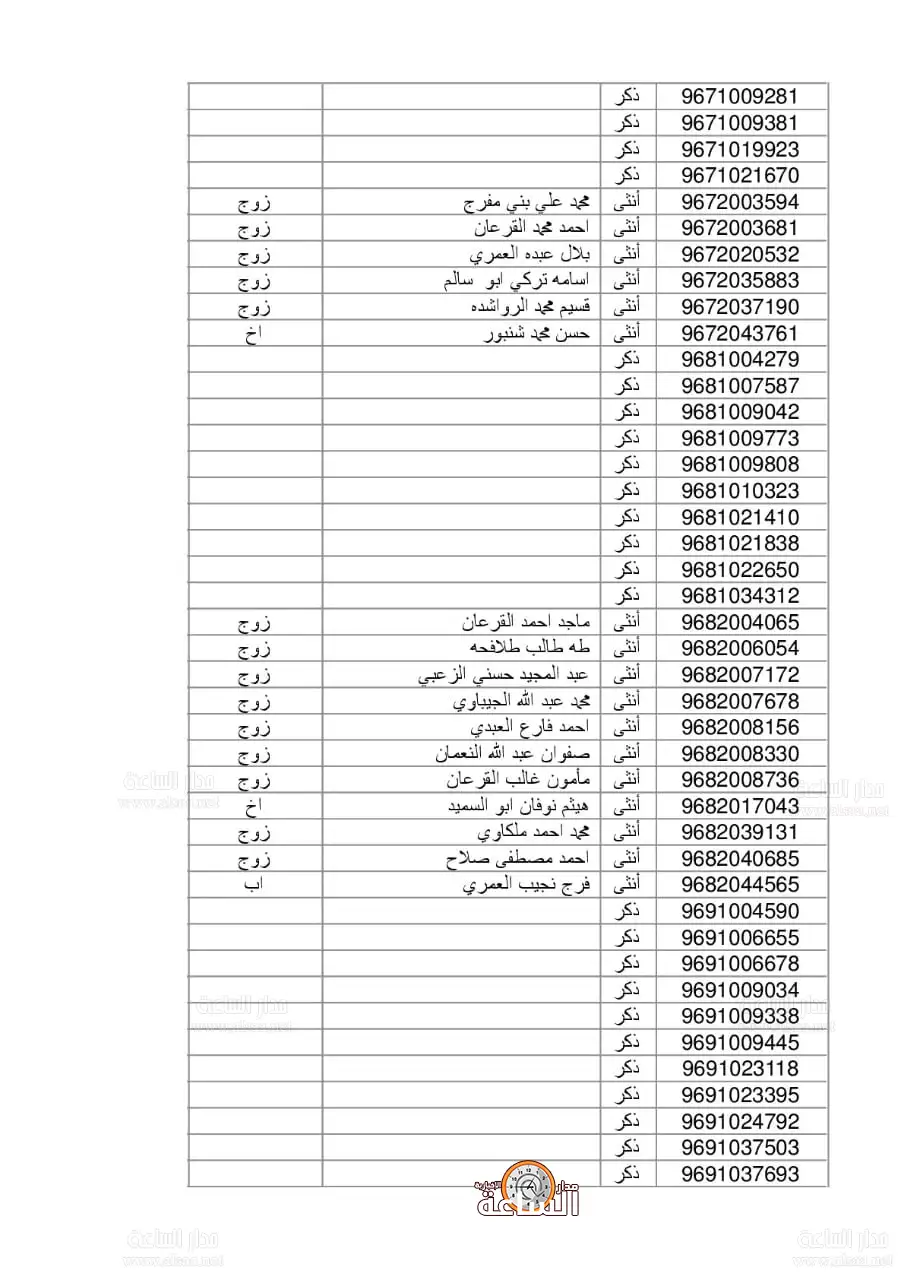 9671009281 ذكر
9671009381 ذكر
9671019923 ذكر
9671021670 ذكر
9672003594 أنثى محمد علي بني مفرج زوج
9672003681 أنثى احمد محمد القرعان زوج
9672020532 أنثى بلال عبده العمري زوج
9672035883 أنثى اسامه تركي ابو سالم زوج
9672037190 أنثى قسيم محمد الرواشده زوج
9672043761 أنثى حسن محمد شنبور اخ
9681004279 ذكر
9681007587 ذكر
9681009042 ذكر
9681009773 ذكر
9681009808 ذكر
9681010323 ذكر
9681021410 ذكر
9681021838 ذكر
9681022650 ذكر
9681034312 ذكر
9682004065 أنثى ماجد احمد القرعان زوج
9682006054 أنثى طه طالب طلافحه زوج
9682007172 أنثى عبد المجيد حسني الزعبي زوج
9682007678 أنثى محمد عبد الله الجيباوي زوج
9682008156 أنثى احمد فارع العبدي زوج
9682008330 أنثى صفوان عبد الله النعمان زوج
9682008736 أنثى مأمون غالب القرعان زوج
9682017043 أنثى هيثم نوفان ابو السميد اخ
9682039131 أنثى محمد احمد ملكاوي زوج
9682040685 أنثى احمد مصطفى صلاح زوج
9682044565 أنثى فرج نجيب العمري اب
9691004590 ذكر
9691006655 ذكر
9691006678 ذكر
9691009034 ذكر
9691009338 ذكر
9691009445 ذكر
9691023118 ذكر
9691023395 ذكر
9691024792 ذكر
9691037503 ذكر
9691037693 ذكر
مدار الساعة الإخبارية